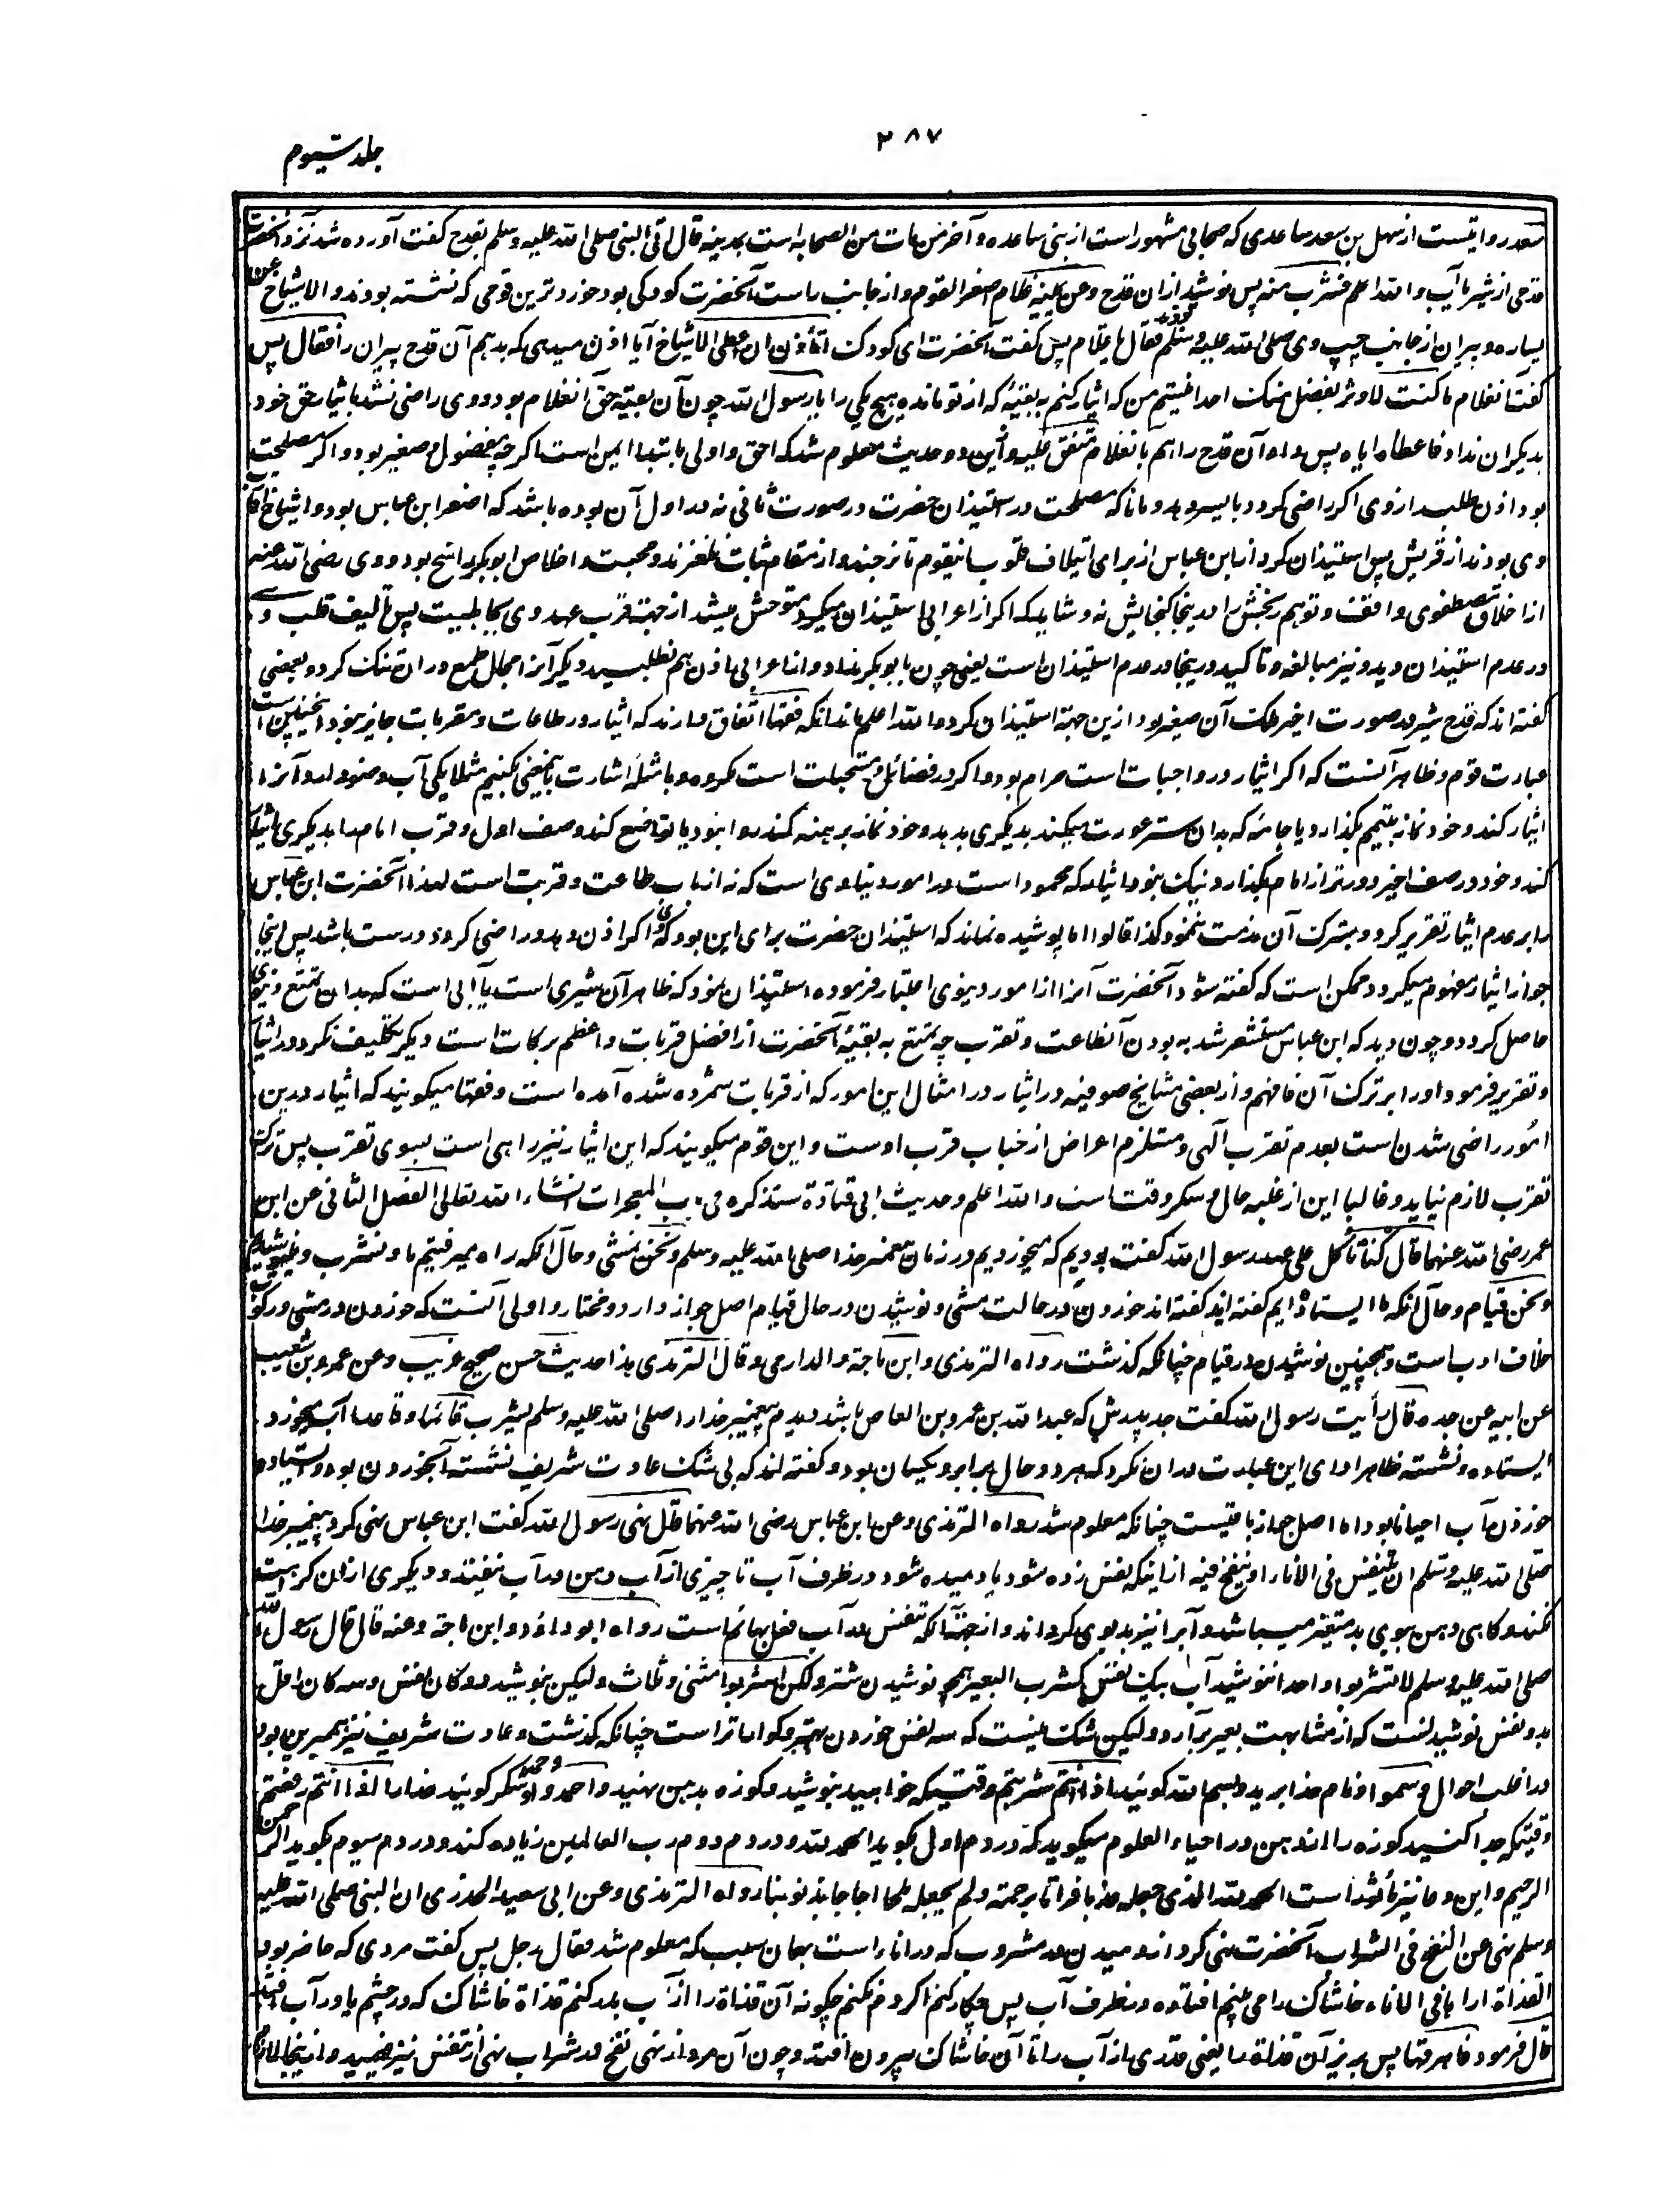 ۳۸۷
جلد سیوم
سعد روایتست از سهل بن سعد ساعدی که صحابی مشهور است از بنی ساعده و آخر من مات من الصحابه است بمدینه قال اتی النبی صلی الله علیه وسلم بقدح گفت آورده شد نزد آنحضرت
قدحی از شیر یا آب والله اعلم فشرب منه پس نوشید ازان قدح وعن یمینه غلام اصغر القوم و از جانب راست آنحضرت کودکی بود خوردترین قومی که نشسته بودند والاشیاخ عن
یساره و پیران از جانب چپ وی صلی الله علیه وسلم بودند فقال یا غلام پس گفت آنحضرت ای کودک اتأذن ان اعطی الاشیاخ آیا اذن میدهی که بدهم آن قدح پیران را فقال پس
گفت آنغلام ما کنت لاوثر بفضل منک احدا نیستم من که ایثار کنم به بقیهٔ که از تو مانده هیچ یکی را یا رسول الله چون آن بقیه حق آنغلام بود و وی راضی نشد بایثار حق خود
بدیگران نداد فاعطاه ایاه پس داد آن قدح را هم بآنغلام متفق علیه و ازین دو حدیث معلوم شد که احق و اولی بابتدا ایمن است اگرچه مفضول و صغیر بود و اگر مصلحت
بود اذن طلبد از وی اگر راضی گردد بایسر دهد و مانا که مصلحت در استیذان حضرت در صورت ثانی نه در اول آن بوده باشد که اصغر ابن عباس بود و اشیاخ اقارب
وی بودند از قریش پس استیذان کرد از ابن عباس از برای ایتلاف قلوب اینقوم تا نرنجند و از مقام ثبات نلغزند و محبت و اخلاص ابوبکر راسخ بود و وی رضی الله عنه
از اخلاق مصطفوی واقف و توهم رنجش را درینجا گنجایش نه و شاید که اگر از اعرابی استیذان میکرد متوحش میشد از جهت قرب عهد وی بجاهلیت پس تألیف قلب وے
در عدم استیذان دید و نیز مبالغه و تاکید درینجا در عدم استیذان است یعنی چون بابوبکر نداد و از اعرابی اذن هم نطلبید دیگر آنرا مجال طمع دران تنگ کرد و بعضی
گفته اند که قدح شیر در صورت اخیر ملک آن صغیر بود ازین جهة استیذان کرد والله اعلم بدانکه فقها اتفاق دارند که ایثار در طاعات و مقربات جایز نبود اینچنین است
عبارت قوم و ظاهر آنست که اگر ایثار در واجبات است حرام بود و اگر در فضائل و مستحبات است مکروه و بامثله اشارت تا بعضی بکنیم مثلا یکی آب وضو دارد و آنرا
ایثار کند و خود نماز به تیمم بگذارد یا جامهٔ که بدان ستر عورت میکند بدیگری بدهد و خود نماز برهنه کند روا نبود یا تواضع کند و صف اول و قرب امام را بدیگری ایثار
کند و خود در صف اخیر دورتر از امام بگذارد و نیک نبود ایثار که محمود است در امور دنیاوی است که نه از باب طاعت و قربت است لهذا آنحضرت ابن عباس
را بر عدم ایثار تقریر کرد و بترک آن مذمت ننمود کذا قالوا اما پوشیده نماند که استیذان حضرت برای این بود که وی اگر اذن دهد و راضی گردد درست باشد پس اینجا
جواز ایثار مفهوم میگردد و ممکن است که گفته شود آنحضرت آنرا از امور دنیوی اعتبار فرموده استیذان نمود که ظاهر آن شیری است یا آبی است که بدان تمتع دنیوی
حاصل گردد و چون دید که ابن عباس مستشعر شد به بودن آنطاعت و تقرب چه تمتع به بقیهٔ آنحضرت از افضل قربات و اعظم برکات است دیگر تکلیف نکرد و ایثار
و تقریر فرمود او را بر ترک آن فافهم و از بعضی مشایخ صوفیه در ایثار در امثال این امور که از قربات شمرده شده آمده است و فقها میگویند که ایثار درین
امور راضی شدن است بعدم تقرب الهی و مستلزم اعراض از جناب قرب اوست و این قوم میگویند که این ایثار نیز راهی است بسوی تقرب پس ترک
تقرب لازم نیاید و غالبا این از غلبه حال و سکر وقت است والله اعلم وحدیث ابی قتادة سنذکره فی باب المعجزات انشاء الله تعالی الفصل الثانی عن ابن
عمر رضی الله عنهما قال کنا نأکل علی عهد رسول الله گفت بودیم که میخوردیم در زمان پیغمبر خدا صلی الله علیه وسلم ونحن نمشی و حال آنکه راه میرفتیم ما ونشرب و مینوشیدیم
ونحن قیام و حال آنکه ما ایستاده ایم گفته اند گفته اند خوردن در حالت مشی و نوشیدن در حال قیام اصل جواز دارد و مختار و اولی آنست که خوردن در مشی و رکوب
خلاف ادب است و همچنین نوشیدن در قیام چنانکه گذشت رواه الترمذی وابن ماجة والدارمی وقال الترمذی هذا حدیث حسن صحیح غریب وعن عمرو بن شعیب
عن ابیه عن جده قال رأیت رسول الله گفت جد پدرش که عبدالله بن عمرو بن العاص باشد دیدم پیغمبر خدا را صلی الله علیه وسلم یشرب قائما وقاعدا آب میخورد
ایستاده و نشسته ظاهرا ادای این عبارت دران نکرد که هر دو حال برابر و یکسان بود و گفته اند که بی شک عادت شریف نشسته آبخوردن بود و ایستاده
خوردن آب احیانا بود اما اصل جواز باقیست چنانکه معلوم شد رواه الترمذی وعن ابن عباس رضی الله عنهما قال نهی رسول الله گفت ابن عباس نهی کرد پیغمبر خدا
صلی الله علیه وسلم ان یتنفس فی الاناء او ینفخ فیه از اینکه نفس زده شود یا دمیده شود در ظرف آب تا چیزی از آب دهن در آب نیفتد و دیگری ازان کراهت
نکند و گاهی دهن بوی بد متغیر میباشد و آبرا نیز بدبوی گرداند و از جهت آنکه تنفس در آب فعل بهائم است رواه ابوداؤد وابن ماجة وعنه قال قال رسول الله
صلی الله علیه وسلم لا تشربوا واحدا ننوشید آب بیک نفس کشرب البعیر همچو نوشیدن شتر ولکن اشربوا مثنی وثلاث ولیکن بنوشید دوگان نفس و سه گان اقل
بدو نفس نوشید نست که از مشابهت بعیر برآرد و لیکن شک نیست که سه نفس خوردن بهتر و گواراتر است چنانکه گذشت و عادت شریف نیز همیرین بود
در اغلب احوال وسموا و نام خدا برید و بسم الله گوئید اذا انتم شربتم وقتیکه خواهید بنوشید و کوزه بدهن نهید واحمدوا و حمد و شکر گوئید خدا را اذا انتم رفعتم
وقتیکه جدا کنید کوزه را از دهن در احیاء العلوم میگوید که در دم اول بگوید الحمد لله و در دم دوم رب العالمین زیاده کند و در دم سیوم بگوید الرحمن
الرحیم و این دعا نیز ماثور است الحمد لله الذی جعله عذبا فراتا برحمته ولم یجعله ملحا اجاجا بذنوبنا رواه الترمذی وعن ابی سعید الخدری ان النبی صلی الله علیه
وسلم نهی عن النفخ فی الشراب آنحضرت نهی کرد از دمیدن در مشروب که در اناء است بهمان سبب که معلوم شد فقال رجل پس گفت مردی که حاضر بود
القذاة اراها فی الاناء خاشاک را می بینم افتاده در ظرف آب پس چکار کنم اگر دم نکنم چگونه آن قذاة را از آب بدر کنم قذاة خاشاک که در چشم یا در آب افتد
قال فرمود فاهرقها پس بریز آن قذاة را یعنی قدری از آب را تا آن خاشاک بیرون افتد و چون آن مرد از نهی نفخ در شراب نهی از تنفس نیز فهمید و ازینجا لازم